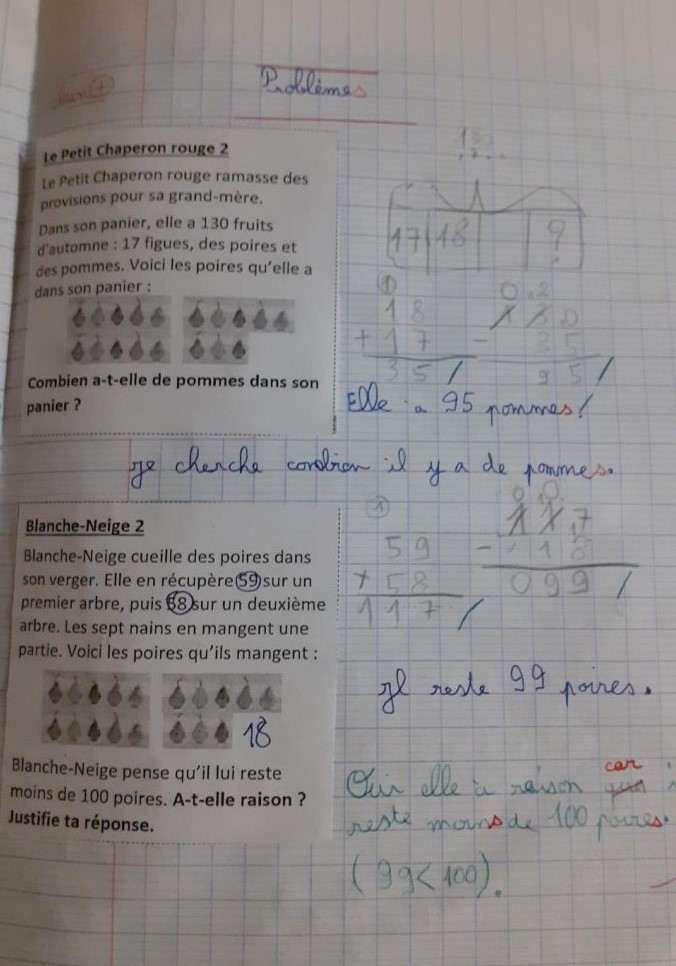 Problèmes
Le Petit Chaperon rouge 2
Le Petit Chaperon rouge ramasse des
provisions pour sa grand-mère.
Dans son panier, elle a 130 fruits
d'automne : 17 figues, des poires et
des pommes. Voici les poires qu'elle a
dans son panier :
Combien a-t-elle de pommes dans son
panier ?
130
17 18 ?
1
18
+ 17
35
0 2
130
- 35
95
Elle a 95 pommes!
je cherche combien il y a de pommes.
Blanche-Neige 2
Blanche-Neige cueille des poires dans
son verger. Elle en récupère 59 sur un
premier arbre, puis 58 sur un deuxième
arbre. Les sept nains en mangent une
partie. Voici les poires qu'ils mangent :
18
Blanche-Neige pense qu'il lui reste
moins de 100 poires. A-t-elle raison ?
Justifie ta réponse.
1
59
+ 58
117
0 0
117
- 18
099
Il reste 99 poires.
car
Oui elle a raison
reste moins de 100 poires.
(99<100).